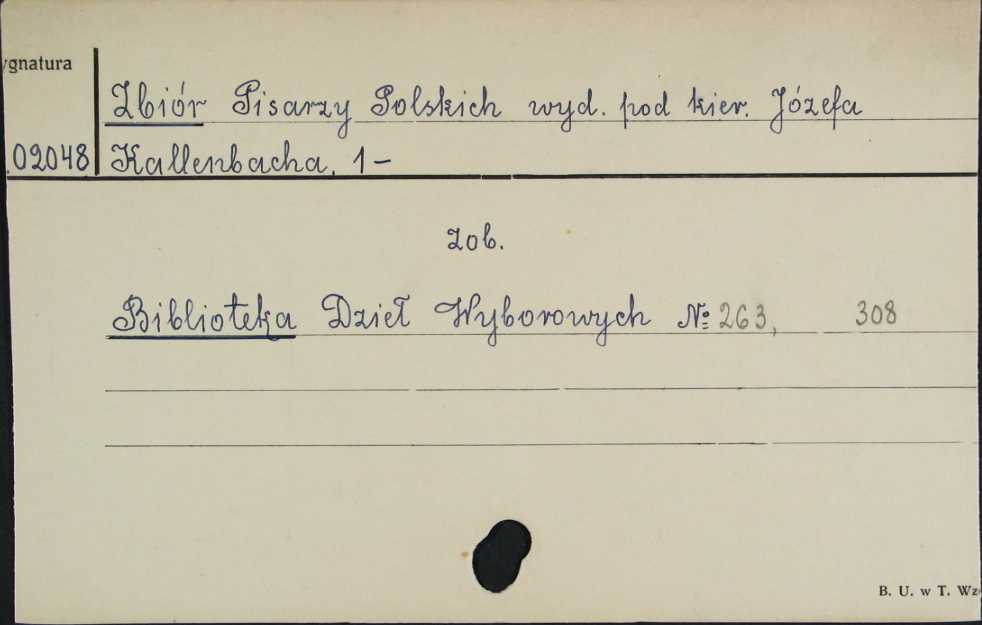 ygnatura
Zbiór Pisarzy Polskich wyd. pod kier. Józefa
02048 Kallenbacha. 1-
zob.
Biblioteka Dzieł Wyborowych № 263, 308
B. U. w T. Wz